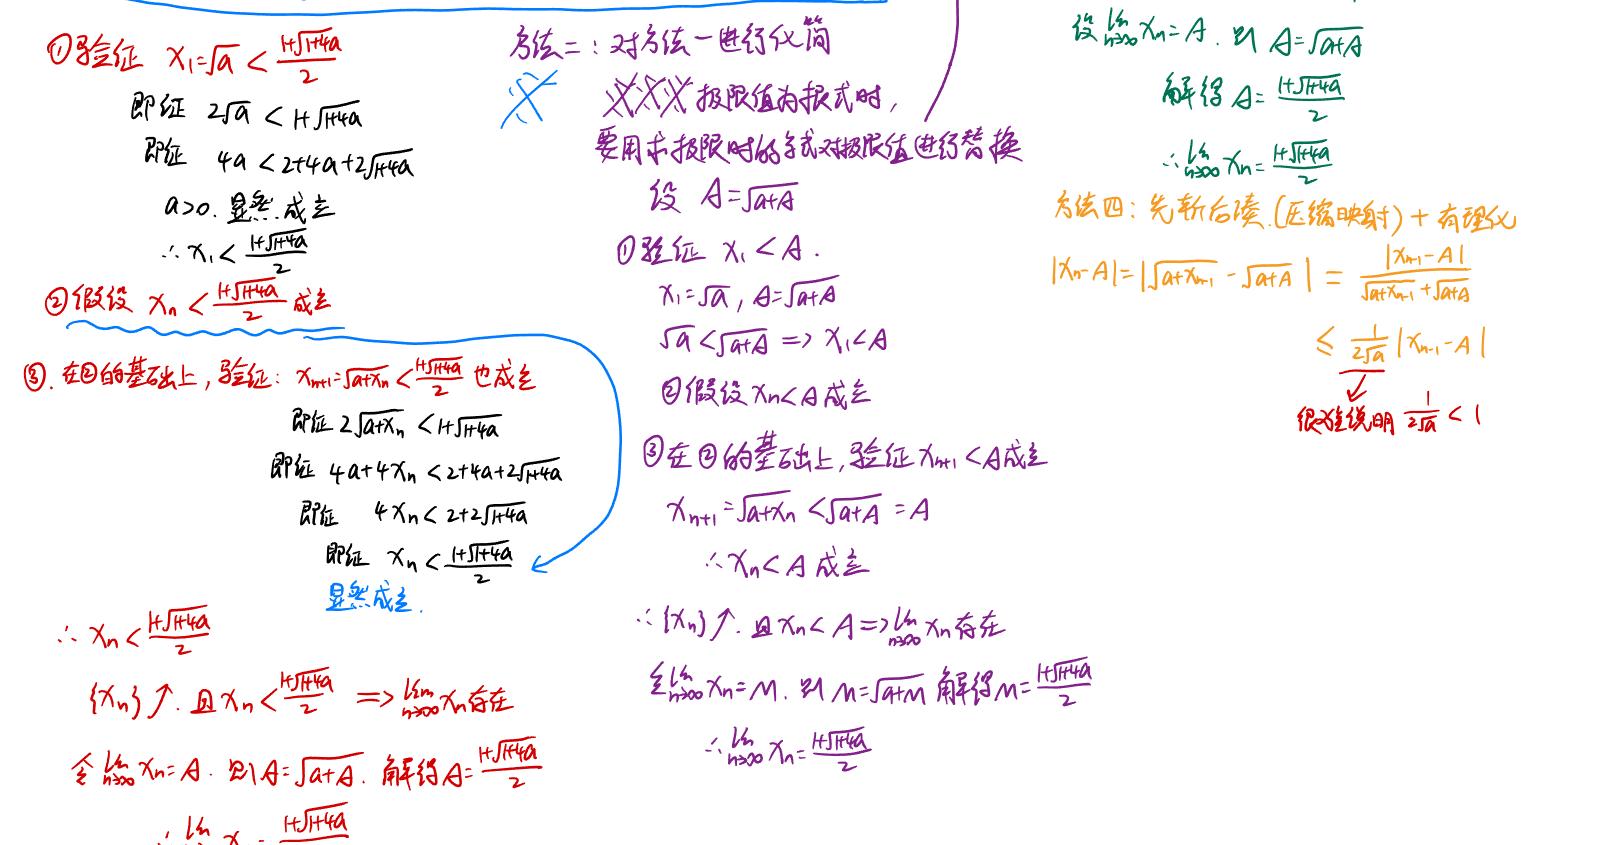 ①验证 x₁=√a < (1+√(1+4a))/2
即证 2√a < 1+√(1+4a)
即证 4a < 2+4a+2√(1+4a)
a>0. 显然成立
∴ x₁ < (1+√(1+4a))/2
②假设 xₙ < (1+√(1+4a))/2 成立
③. 在②的基础上, 验证: xₙ₊₁=√(a+xₙ) < (1+√(1+4a))/2 也成立
即证 2√(a+xₙ) < 1+√(1+4a)
即证 4a+4xₙ < 2+4a+2√(1+4a)
即证 4xₙ < 2+2√(1+4a)
即证 xₙ < (1+√(1+4a))/2
显然成立.
∴ xₙ < (1+√(1+4a))/2
{xₙ}↗. 且 xₙ < (1+√(1+4a))/2 => lim n→∞ xₙ存在
令 lim n→∞ xₙ=A. 则 A=√(a+A). 解得 A=(1+√(1+4a))/2
∴ lim xₙ = (1+√(1+4a))/2
方法二: 对方法一进行化简
※ ※※※ 极限值为根式时,
要用求极限时的等式对极限值进行替换
设 A=√(a+A)
①验证 x₁<A.
x₁=√a, A=√(a+A)
√a<√(a+A) => x₁<A
②假设 xₙ<A成立
③在②的基础上, 验证 xₙ₊₁<A成立
xₙ₊₁=√(a+xₙ)<√(a+A)=A
∴ xₙ<A 成立
∴ {xₙ}↗. 且 xₙ<A => lim n→∞ xₙ存在
令 lim n→∞ xₙ=M. 则 M=√(a+M) 解得 M=(1+√(1+4a))/2
∴ lim n→∞ xₙ=(1+√(1+4a))/2
设 lim n→∞ xₙ=A. 则 A=√(a+A)
解得 A=(1+√(1+4a))/2
∴ lim n→∞ xₙ=(1+√(1+4a))/2
方法四: 先斩后奏.(压缩映射)+有理化
|xₙ-A|=|√(a+xₙ₋₁)-√(a+A)|=|xₙ₋₁-A|/(√(a+xₙ₋₁)+√(a+A))
≤ 1/(2√a) |xₙ₋₁-A|
很难说明 1/(2√a) < 1